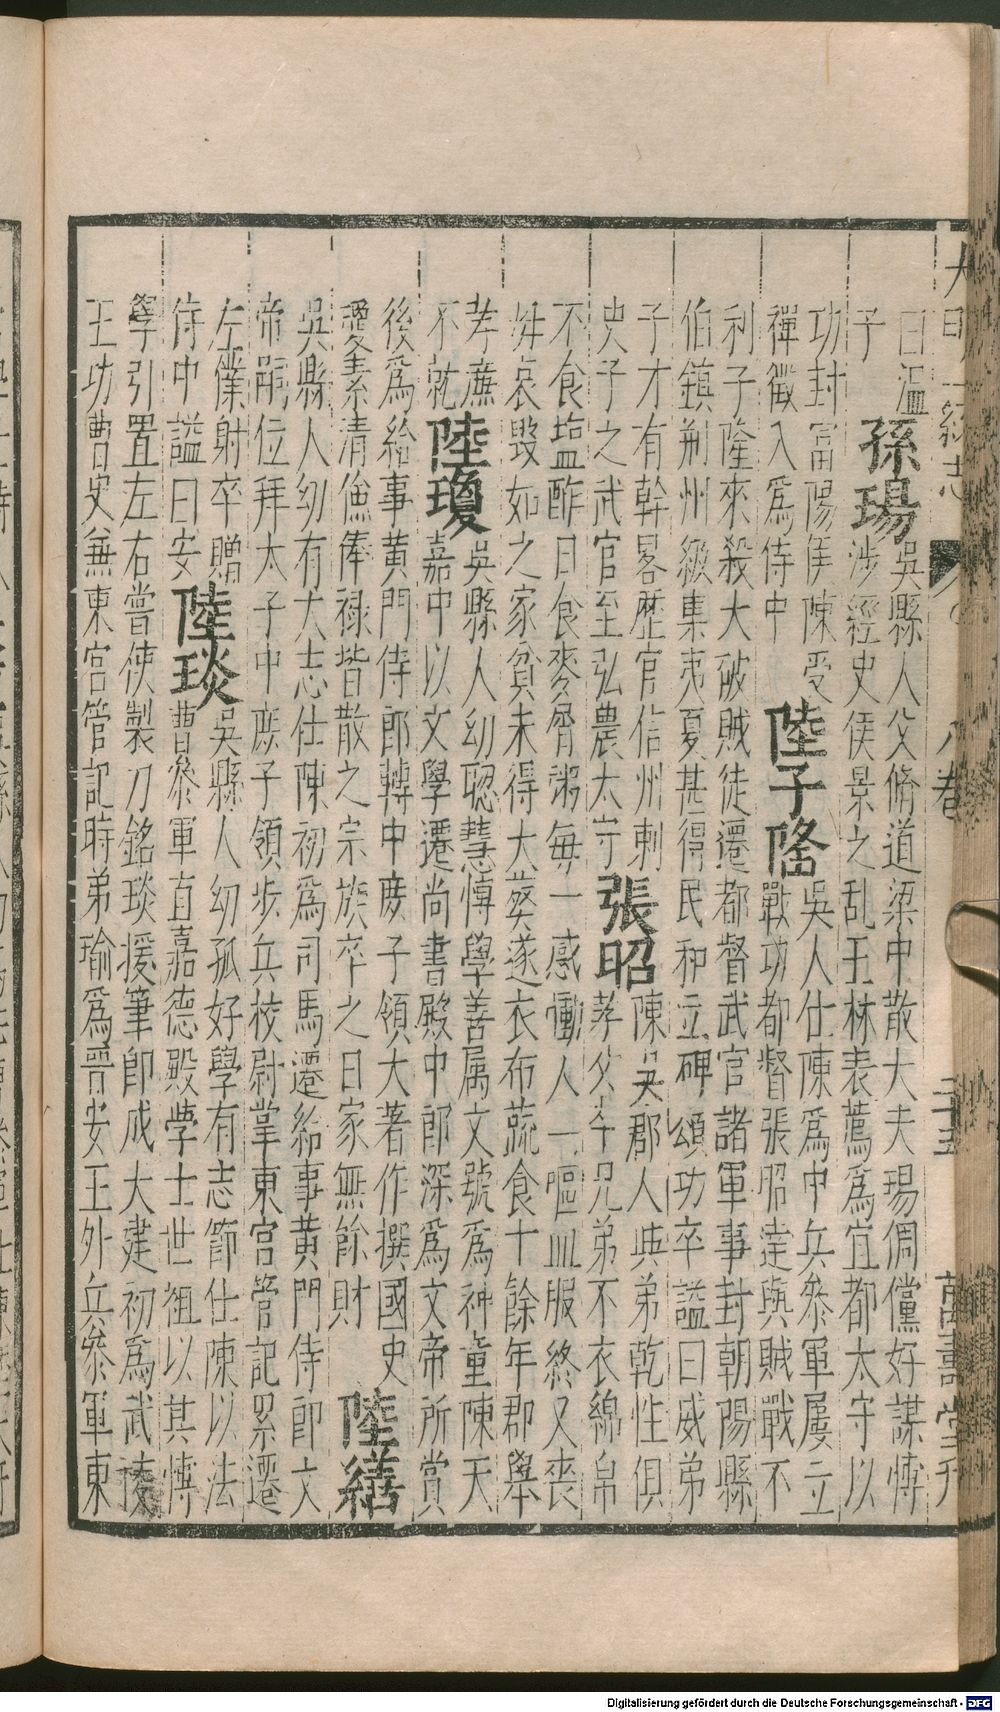 大明一統志 八卷 三五 萬壽堂刋
曰溫
子
孫瑒
吳縣人父脩道梁中散大夫瑒倜儻好謀慱
涉經史侯景之乱王林表薦爲宜都太守以
功封富陽侯陳受
禪徵入爲侍中
陸子隆
吳人仕陳爲中兵叅軍屢立
戰功都督張昭達與賊戰不
利子隆來殺大破賊徒遷都督武官諸軍事封朝陽縣
伯鎮荆州緩集夷夏甚得民和立碑頌功卒謚曰威弟
子才有幹畧歷官信州刺
史子之武官至弘農太守
張昭
陳吳郡人與弟乾性俱
孝父卒兄弟不衣綿帛
不食塩酢日食麥屑粥每一感慟人一嘔血服終又丧
母哀毀如之家貧未得大葬遂衣布蔬食十餘年郡舉
孝廉
不就
陸瓊
吳縣人幼聡慧慱學善属文號爲神童陳天
嘉中以文學遷尚書殿中郎深爲文帝所賞
後爲給事黄門侍郎轉中庶子領大著作撰國史
愛素清儉俸禄皆散之宗族卒之日家無餘財
陸繕
吳縣人幼有大志仕陳初爲司馬遷給事黄門侍郎文
帝嗣位拜太子中庶子領步兵校尉掌東宮管記累遷
左僕射卒贈
侍中謚曰安
陸琰
吳縣人幼孤好學有志節仕陳以法
曹叅軍直嘉德殿學士世祖以其慱
學引置左右嘗使製刀銘琰援筆卽成大建初爲武陵
王功曹史兼東宮管記時弟瑜爲晋安王外兵叅軍東
Digitalisierung gefördert durch die Deutsche Forschungsgemeinschaft - DFG